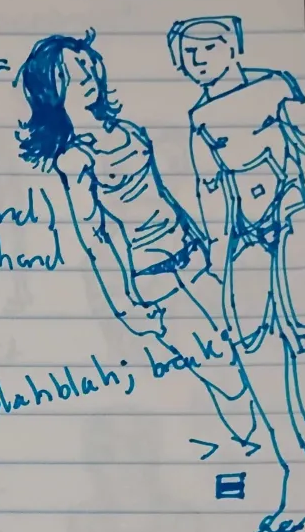 =
nd)
hand
lahblah; break
>